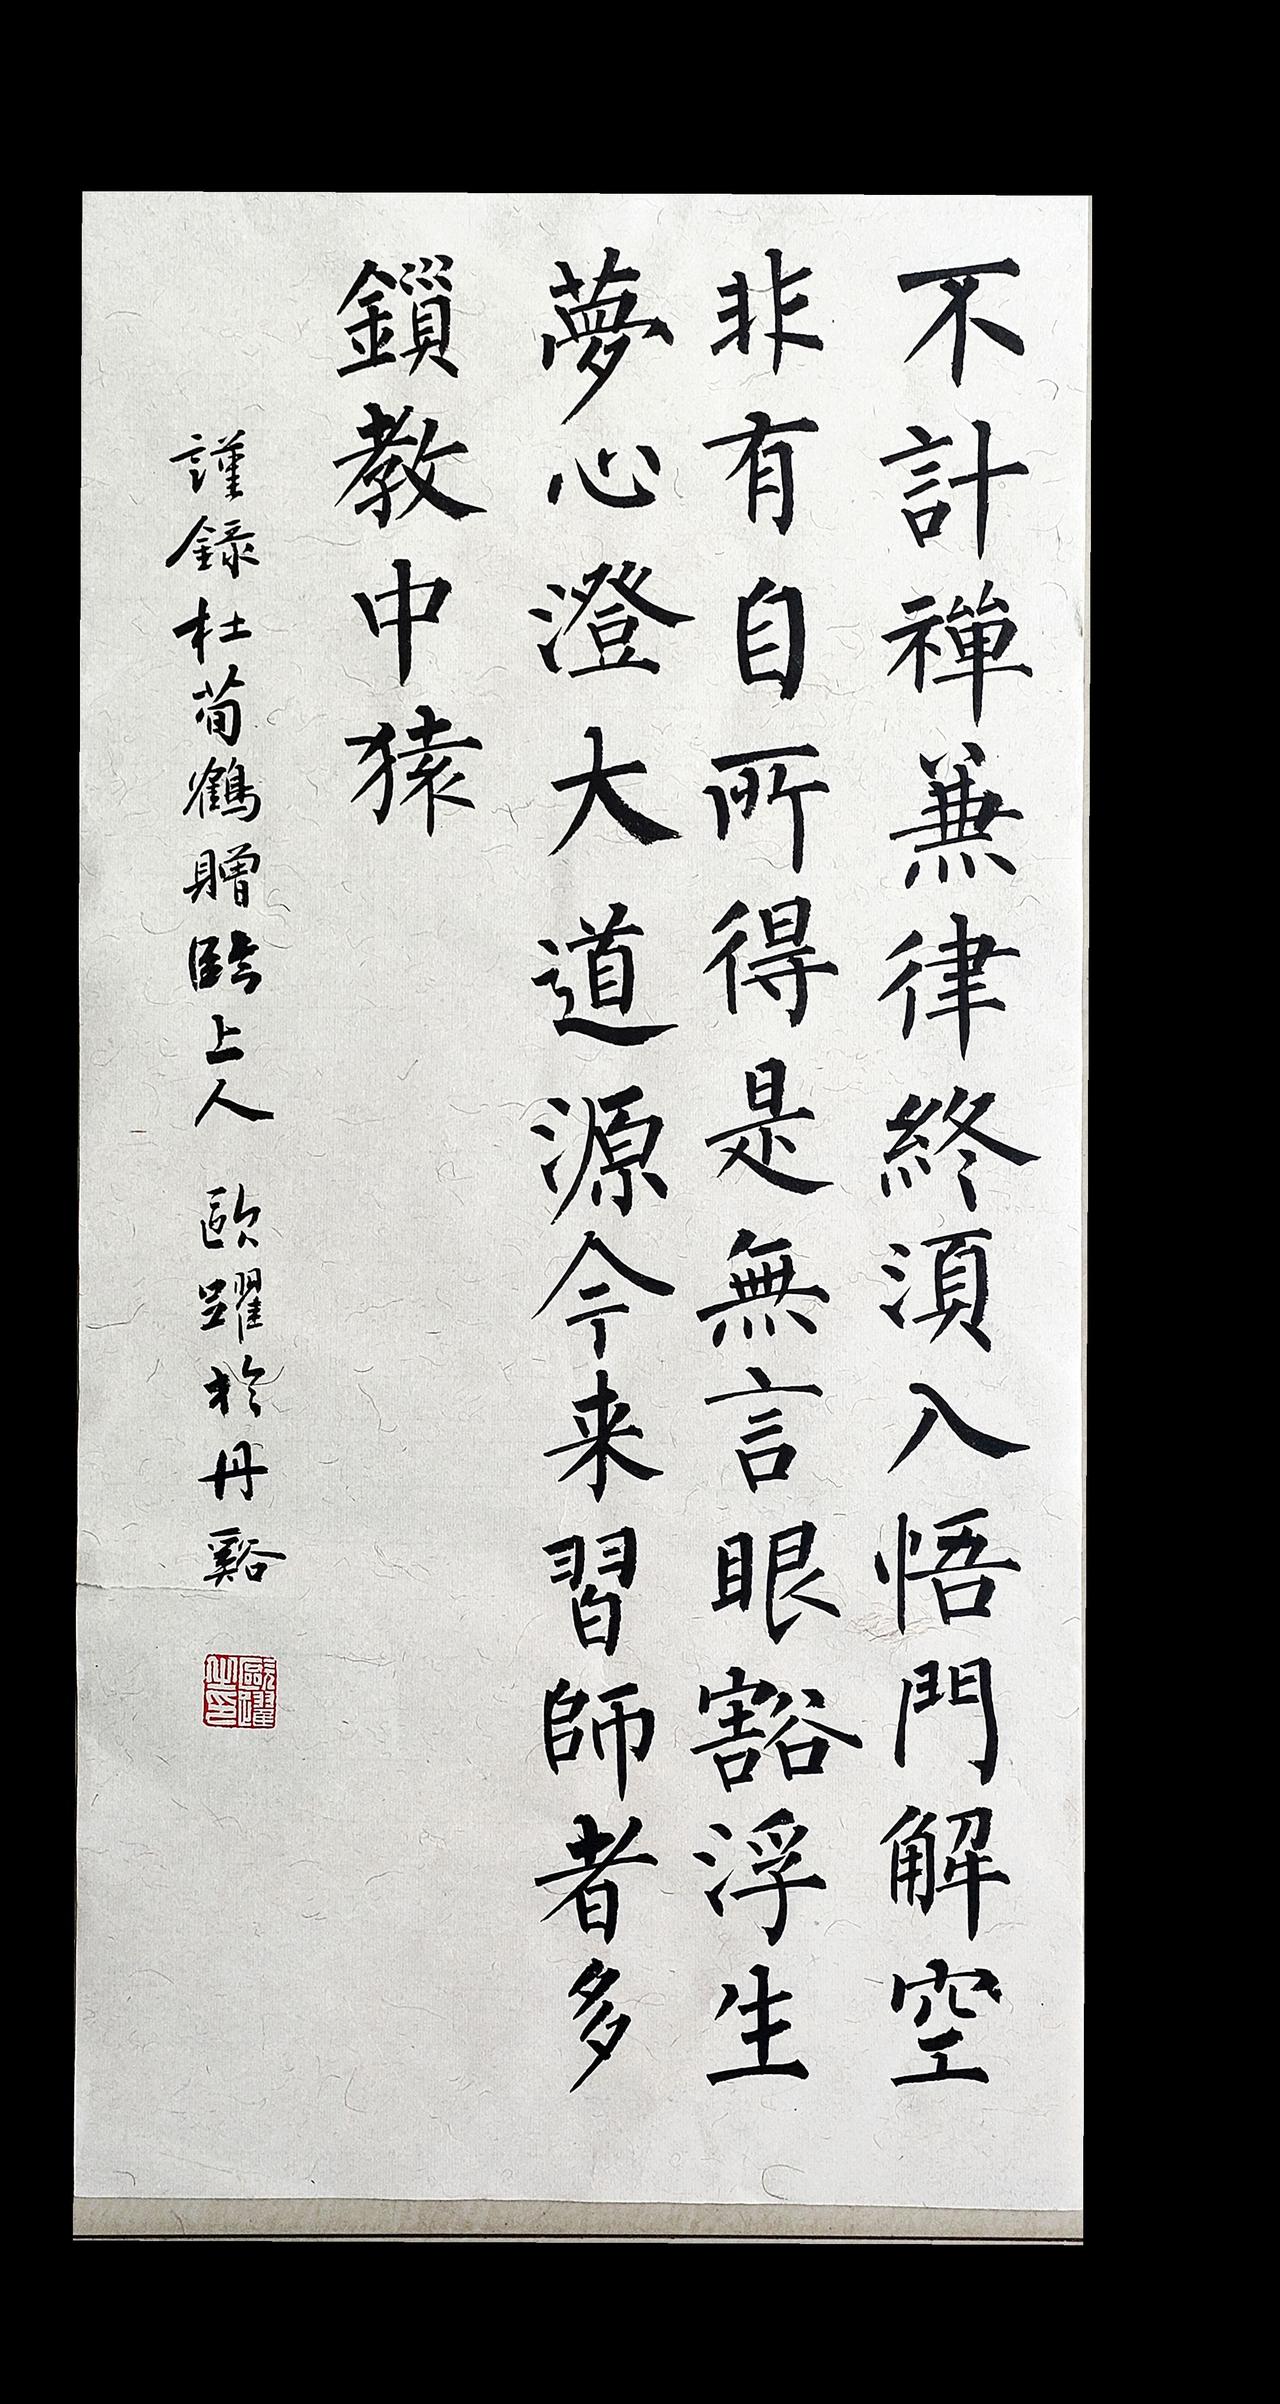 不計禪兼律終須入悟門解空
非有自所得是無言眼豁浮生
夢心澄大道源今来習師者多
鎖教中猿
謹錄杜荀鶴贈臨上人 歐躍於丹谿
歐躍之印